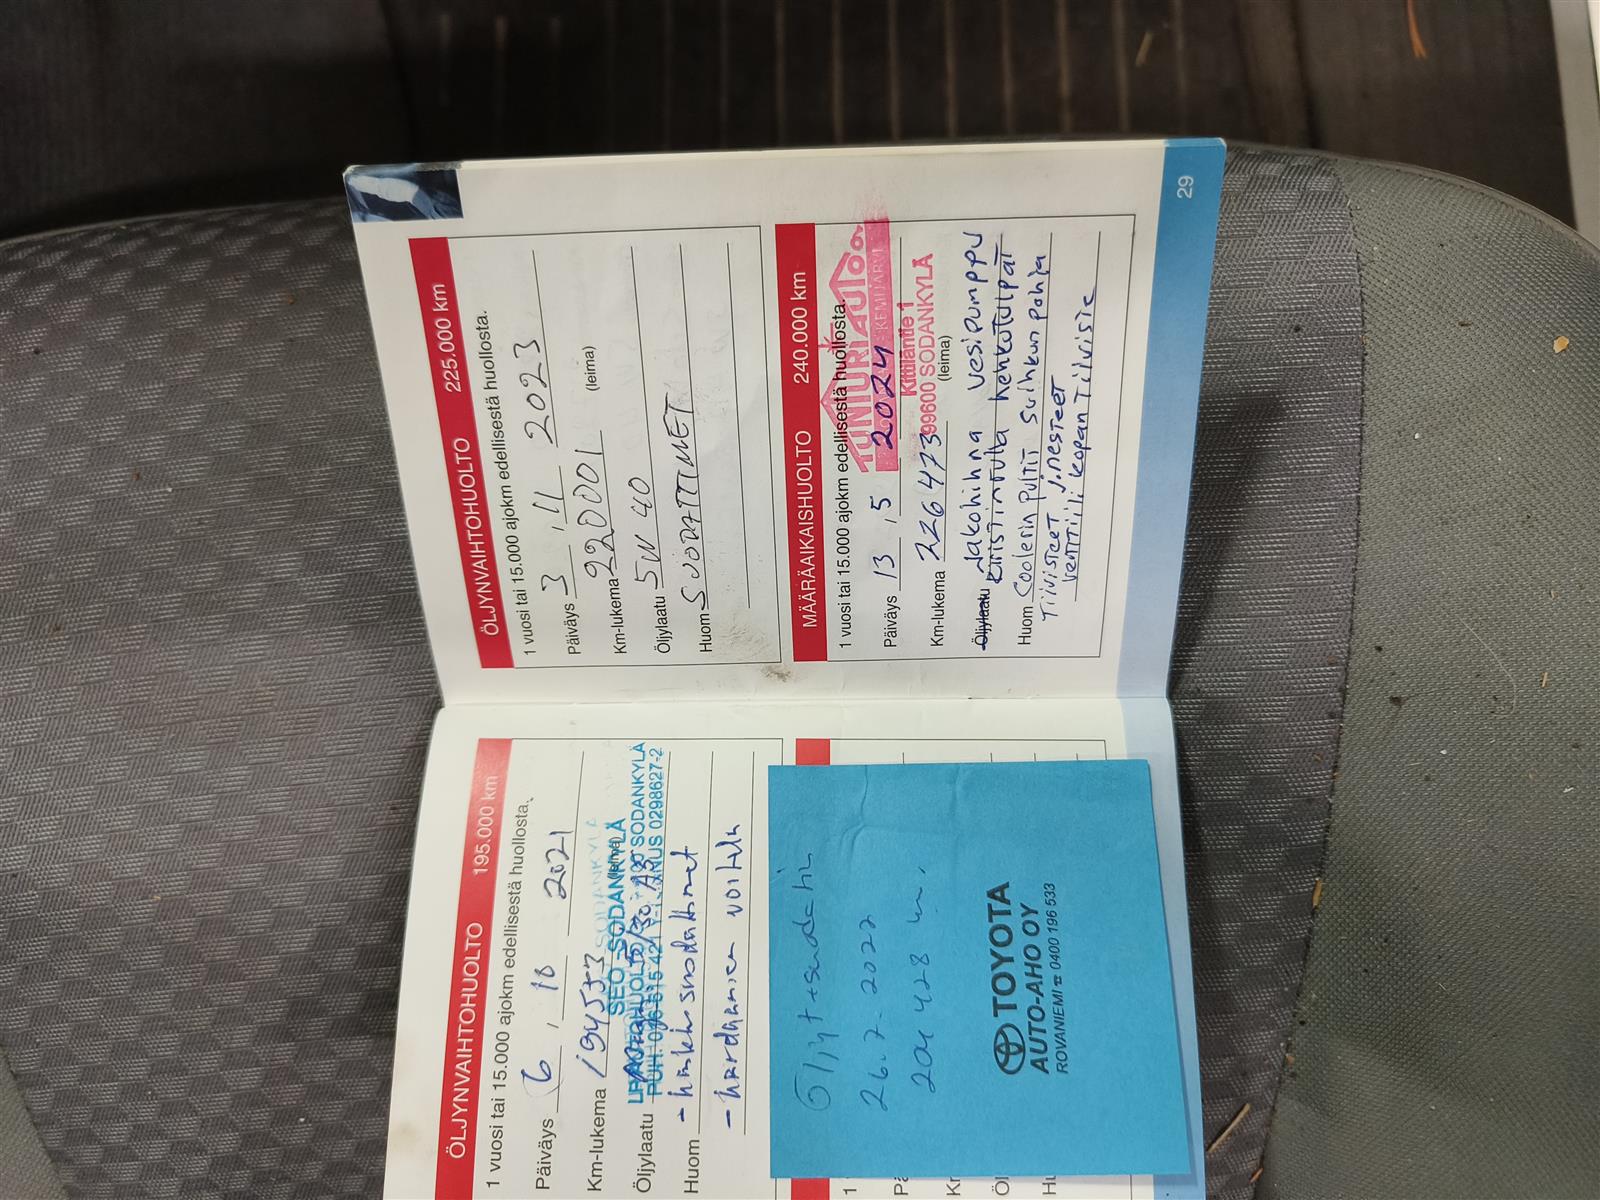 ÖLJYNVAIHTOHUOLTO 195.000 km
1 vuosi tai 15.000 ajokm edellisestä huollosta.
Päiväys 6 . 10 2021
Km-lukema 194573
SEO SODANKYLÄ
Öljylaatu 5/30
0298627-2
Huom - keskusuodattimet
- kardaanien voitelu
Öljyt + suodatin
26.7.2022
204 428 km.
TOYOTA
AUTO-AHO OY
ROVANIEMI ☎ 0400 196 533
ÖLJYNVAIHTOHUOLTO 225.000 km
1 vuosi tai 15.000 ajokm edellisestä huollosta.
Päiväys 3 11 2023
Km-lukema 220001 (leima)
Öljylaatu 5W40
Huom SUODATTIMET
MÄÄRÄAIKAISHUOLTO 240.000 km
1 vuosi tai 15.000 ajokm edellisestä huollosta.
TUNTURIAUTO
KEMIJÄRVI
Päiväys 13 . 5 2024
Kittiläntie 1
Km-lukema 226473 99600 SODANKYLÄ
(leima)
Öljylaatu Jakohihna vesipumppu
Kiristinrulla hehkutulpat
Huom Coolerin pultit suihkun pohja
Tiivisteet j.nesteet
venttiilikopan Tiiviste
29